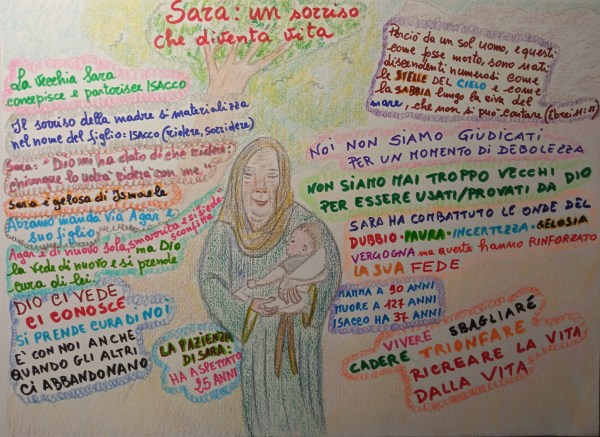 Sara: un sorriso
che diventa vita
La vecchia Sara
concepisce e partorisce ISACCO
Il sorriso della madre si materializza
nel nome del figlio: ISACCO (ridere, sorridere)
Sara: "Dio mi ha dato di che ridere:
chiunque lo udrà riderà con me"
Sara è gelosa di Ismaele
Abramo manda via Agar e
suo figlio
Agar è di nuovo sola, smarrita e si siede
sconfitta
ma Dio
la vede di nuovo e si prende
cura di lei.
DIO CI VEDE
CI CONOSCE
SI PRENDE CURA DI NOI
E' CON NOI ANCHE
QUANDO GLI ALTRI
CI ABBANDONANO
LA PAZIENZA
DI SARA:
HA ASPETTATO
25 ANNI
Perciò da un sol uomo, e questi
come fosse morto, sono nati
discendenti numerosi come
le STELLE DEL CIELO e come
la SABBIA lungo la riva del
mare, che non si può contare (Ebrei 11:11)
NOI NON SIAMO GIUDICATI
PER UN MOMENTO DI DEBOLEZZA
NON SIAMO MAI TROPPO VECCHI
PER ESSERE USATI/PROVATI DA DIO
SARA HA COMBATTUTO LE ONDE DEL
DUBBIO - PAURA - INCERTEZZA - GELOSIA
VERGOGNA ma queste hanno RINFORZATO
LA SUA FEDE
MAMMA A 90 ANNI
MUORE A 127 ANNI
ISACCO HA 37 ANNI
VIVERE SBAGLIARE
CADERE TRIONFARE
RICREARE LA VITA
DALLA VITA